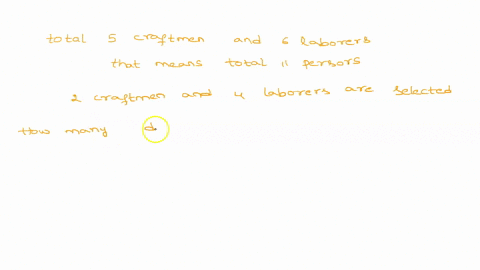 total 5 craftmen and 6 laborers
that means total 11 persons
2 craftmen and 4 laborers are selected
How many d